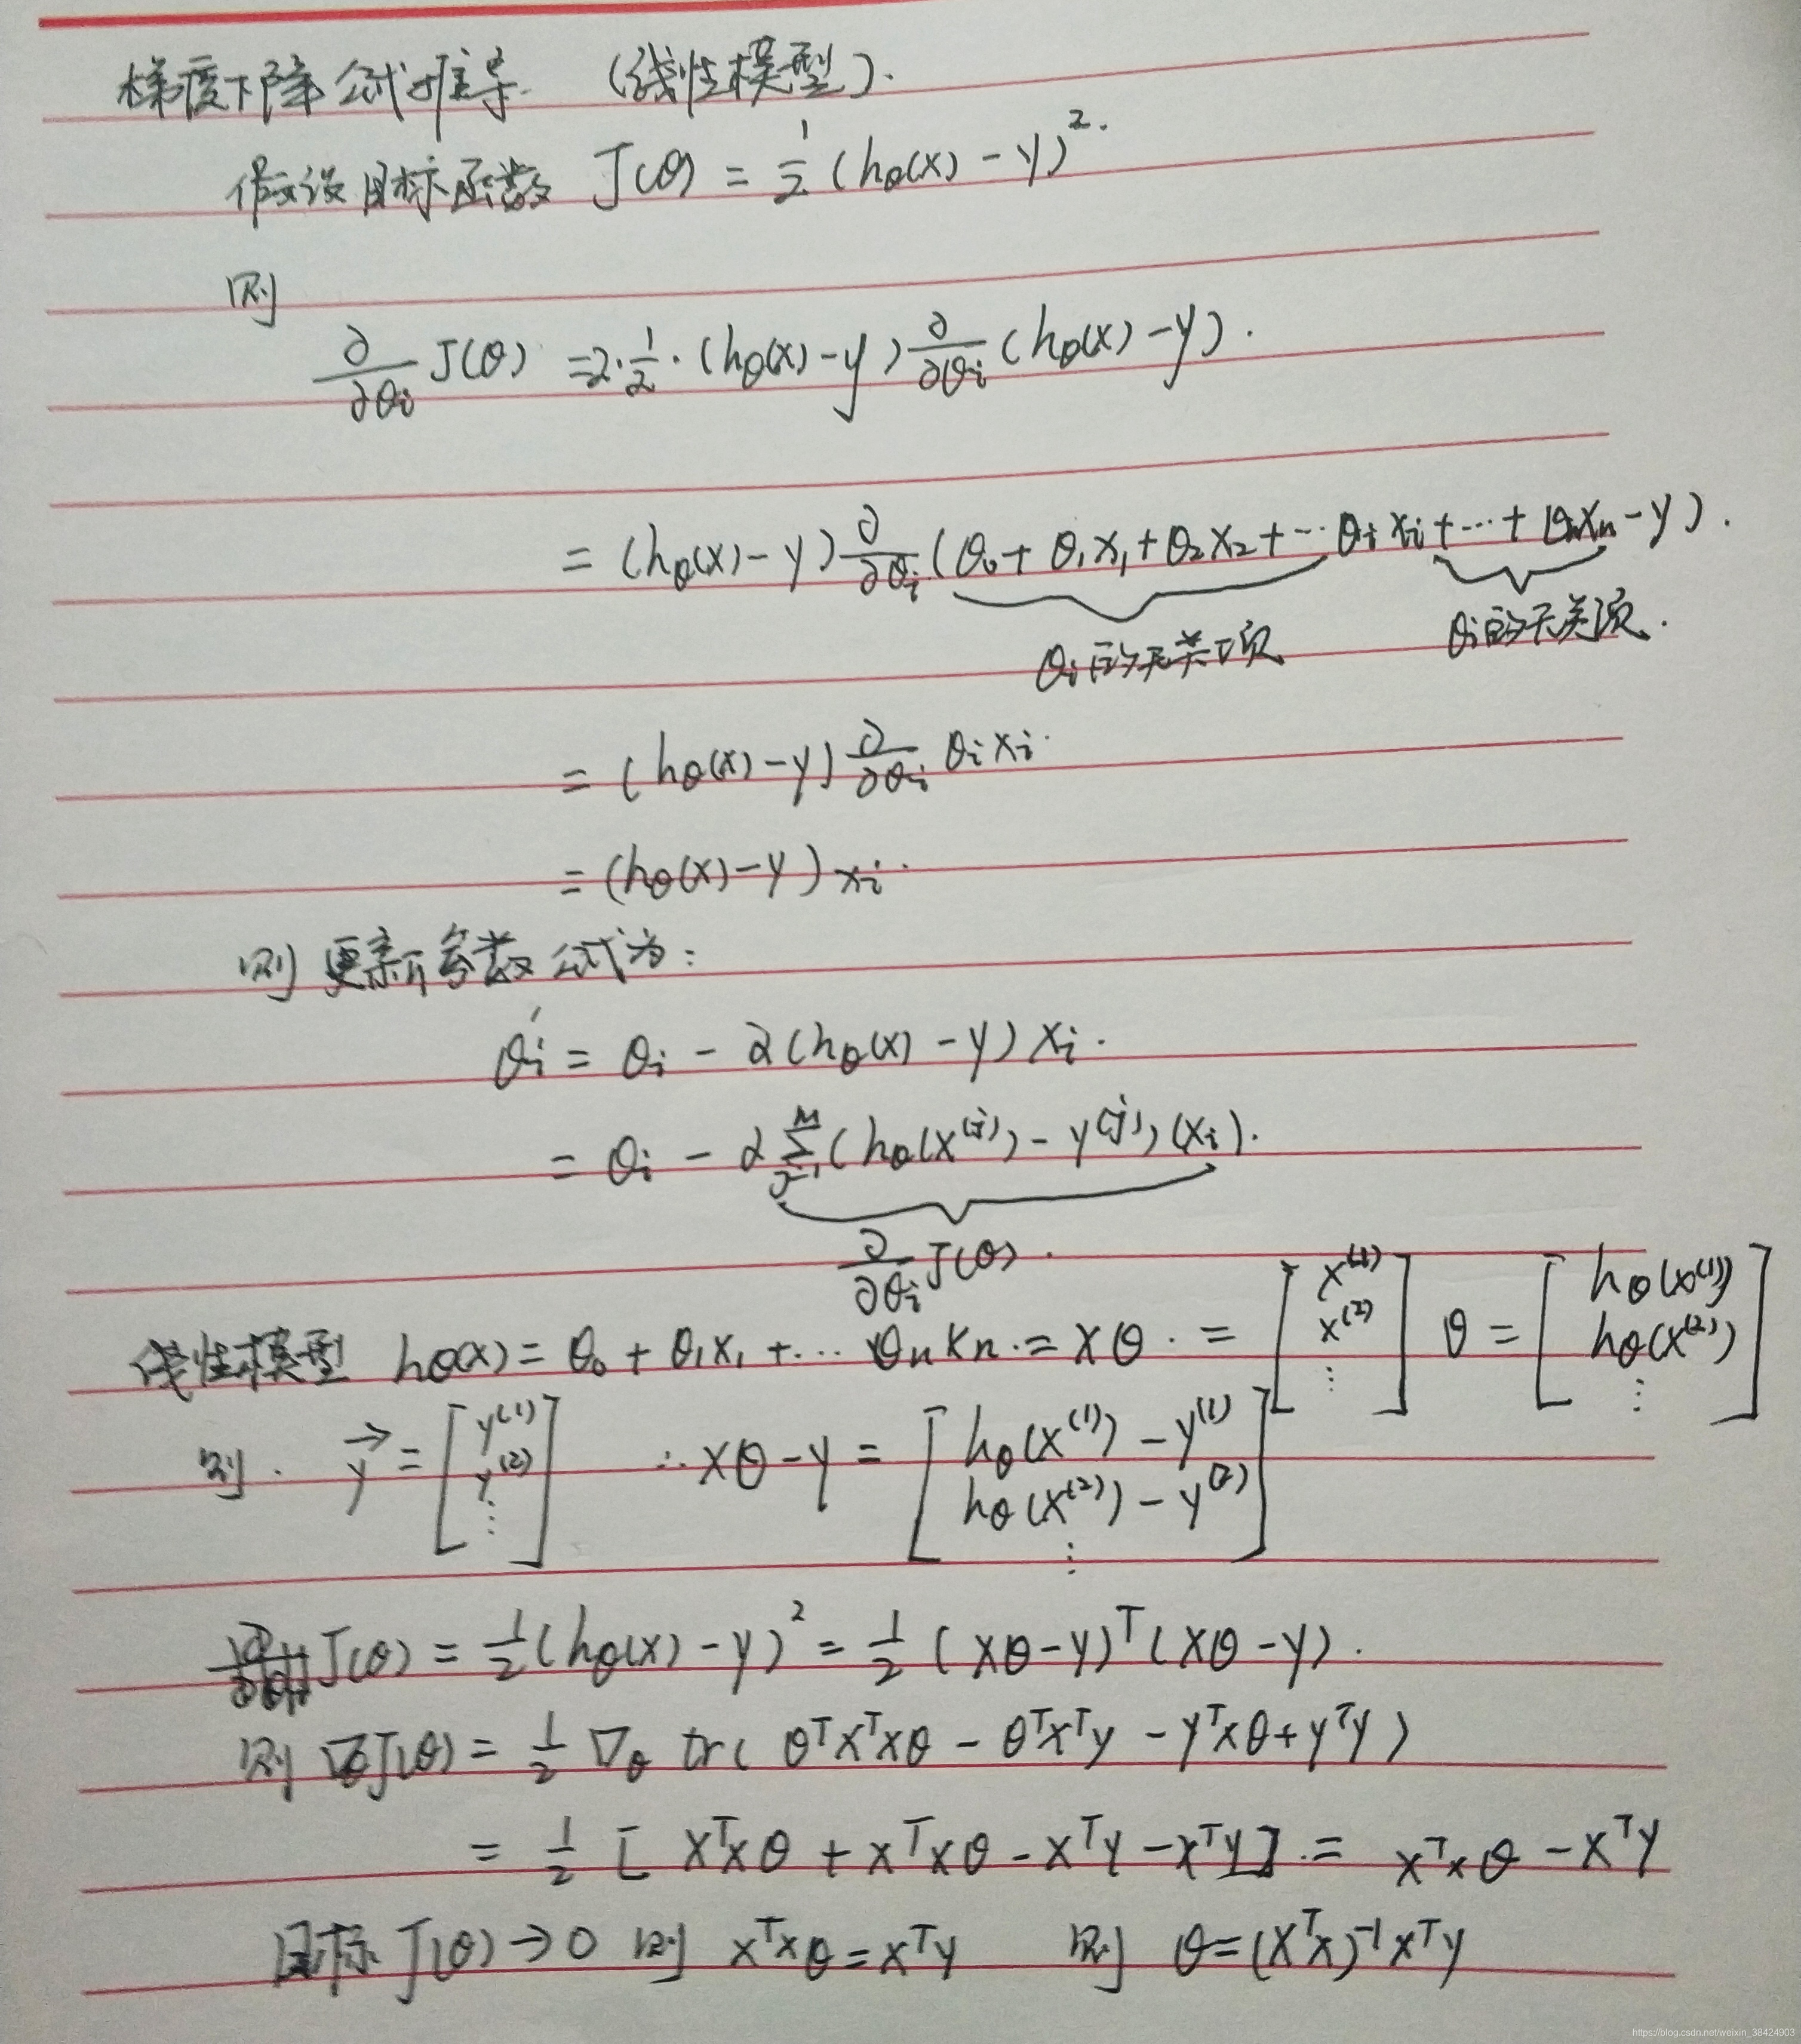 梯度下降公式推导 (线性模型).
假设目标函数 J(θ) = 1/2 (hθ(x) - y)².
则
∂/∂θi J(θ) = 2·1/2·(hθ(x) - y) ∂/∂θi (hθ(x) - y).
= (hθ(x) - y) ∂/∂θi (θ₀ + θ₁x₁ + θ₂x₂ + ··· θi xi + ··· + θnxn - y).
θi的无关项 θi的无关项.
= (hθ(x) - y) ∂/∂θi θi xi.
= (hθ(x) - y) xi.
则 更新参数公式为:
θi' = θi - α(hθ(x) - y) xi.
= θi - α ∑_{j=1}^{M} (hθ(x^(j)) - y^(j)) (xi).
∂/∂θi J(θ).
线性模型 hθ(x) = θ₀ + θ₁x₁ + ··· θn xn. = Xθ. = [x^(1) x^(2) ⋮] θ = [hθ(x^(1)) hθ(x^(2)) ⋮]
则. y⃗ = [y^(1) y^(2) ⋮] ∴ Xθ - y = [hθ(x^(1)) - y^(1) hθ(x^(2)) - y^(2) ⋮]
J(θ) = 1/2 (hθ(x) - y)² = 1/2 (Xθ - y)ᵀ (Xθ - y).
则 ∇θJ(θ) = 1/2 ∇θ tr( θᵀXᵀXθ - θᵀXᵀy - yᵀXθ + yᵀy )
= 1/2 [ XᵀXθ + XᵀXθ - Xᵀy - Xᵀy ]. = XᵀXθ - Xᵀy
目标 J(θ) → 0 则 XᵀXθ = Xᵀy 则 θ = (XᵀX)⁻¹Xᵀy
https://blog.csdn.net/weixin_38424903